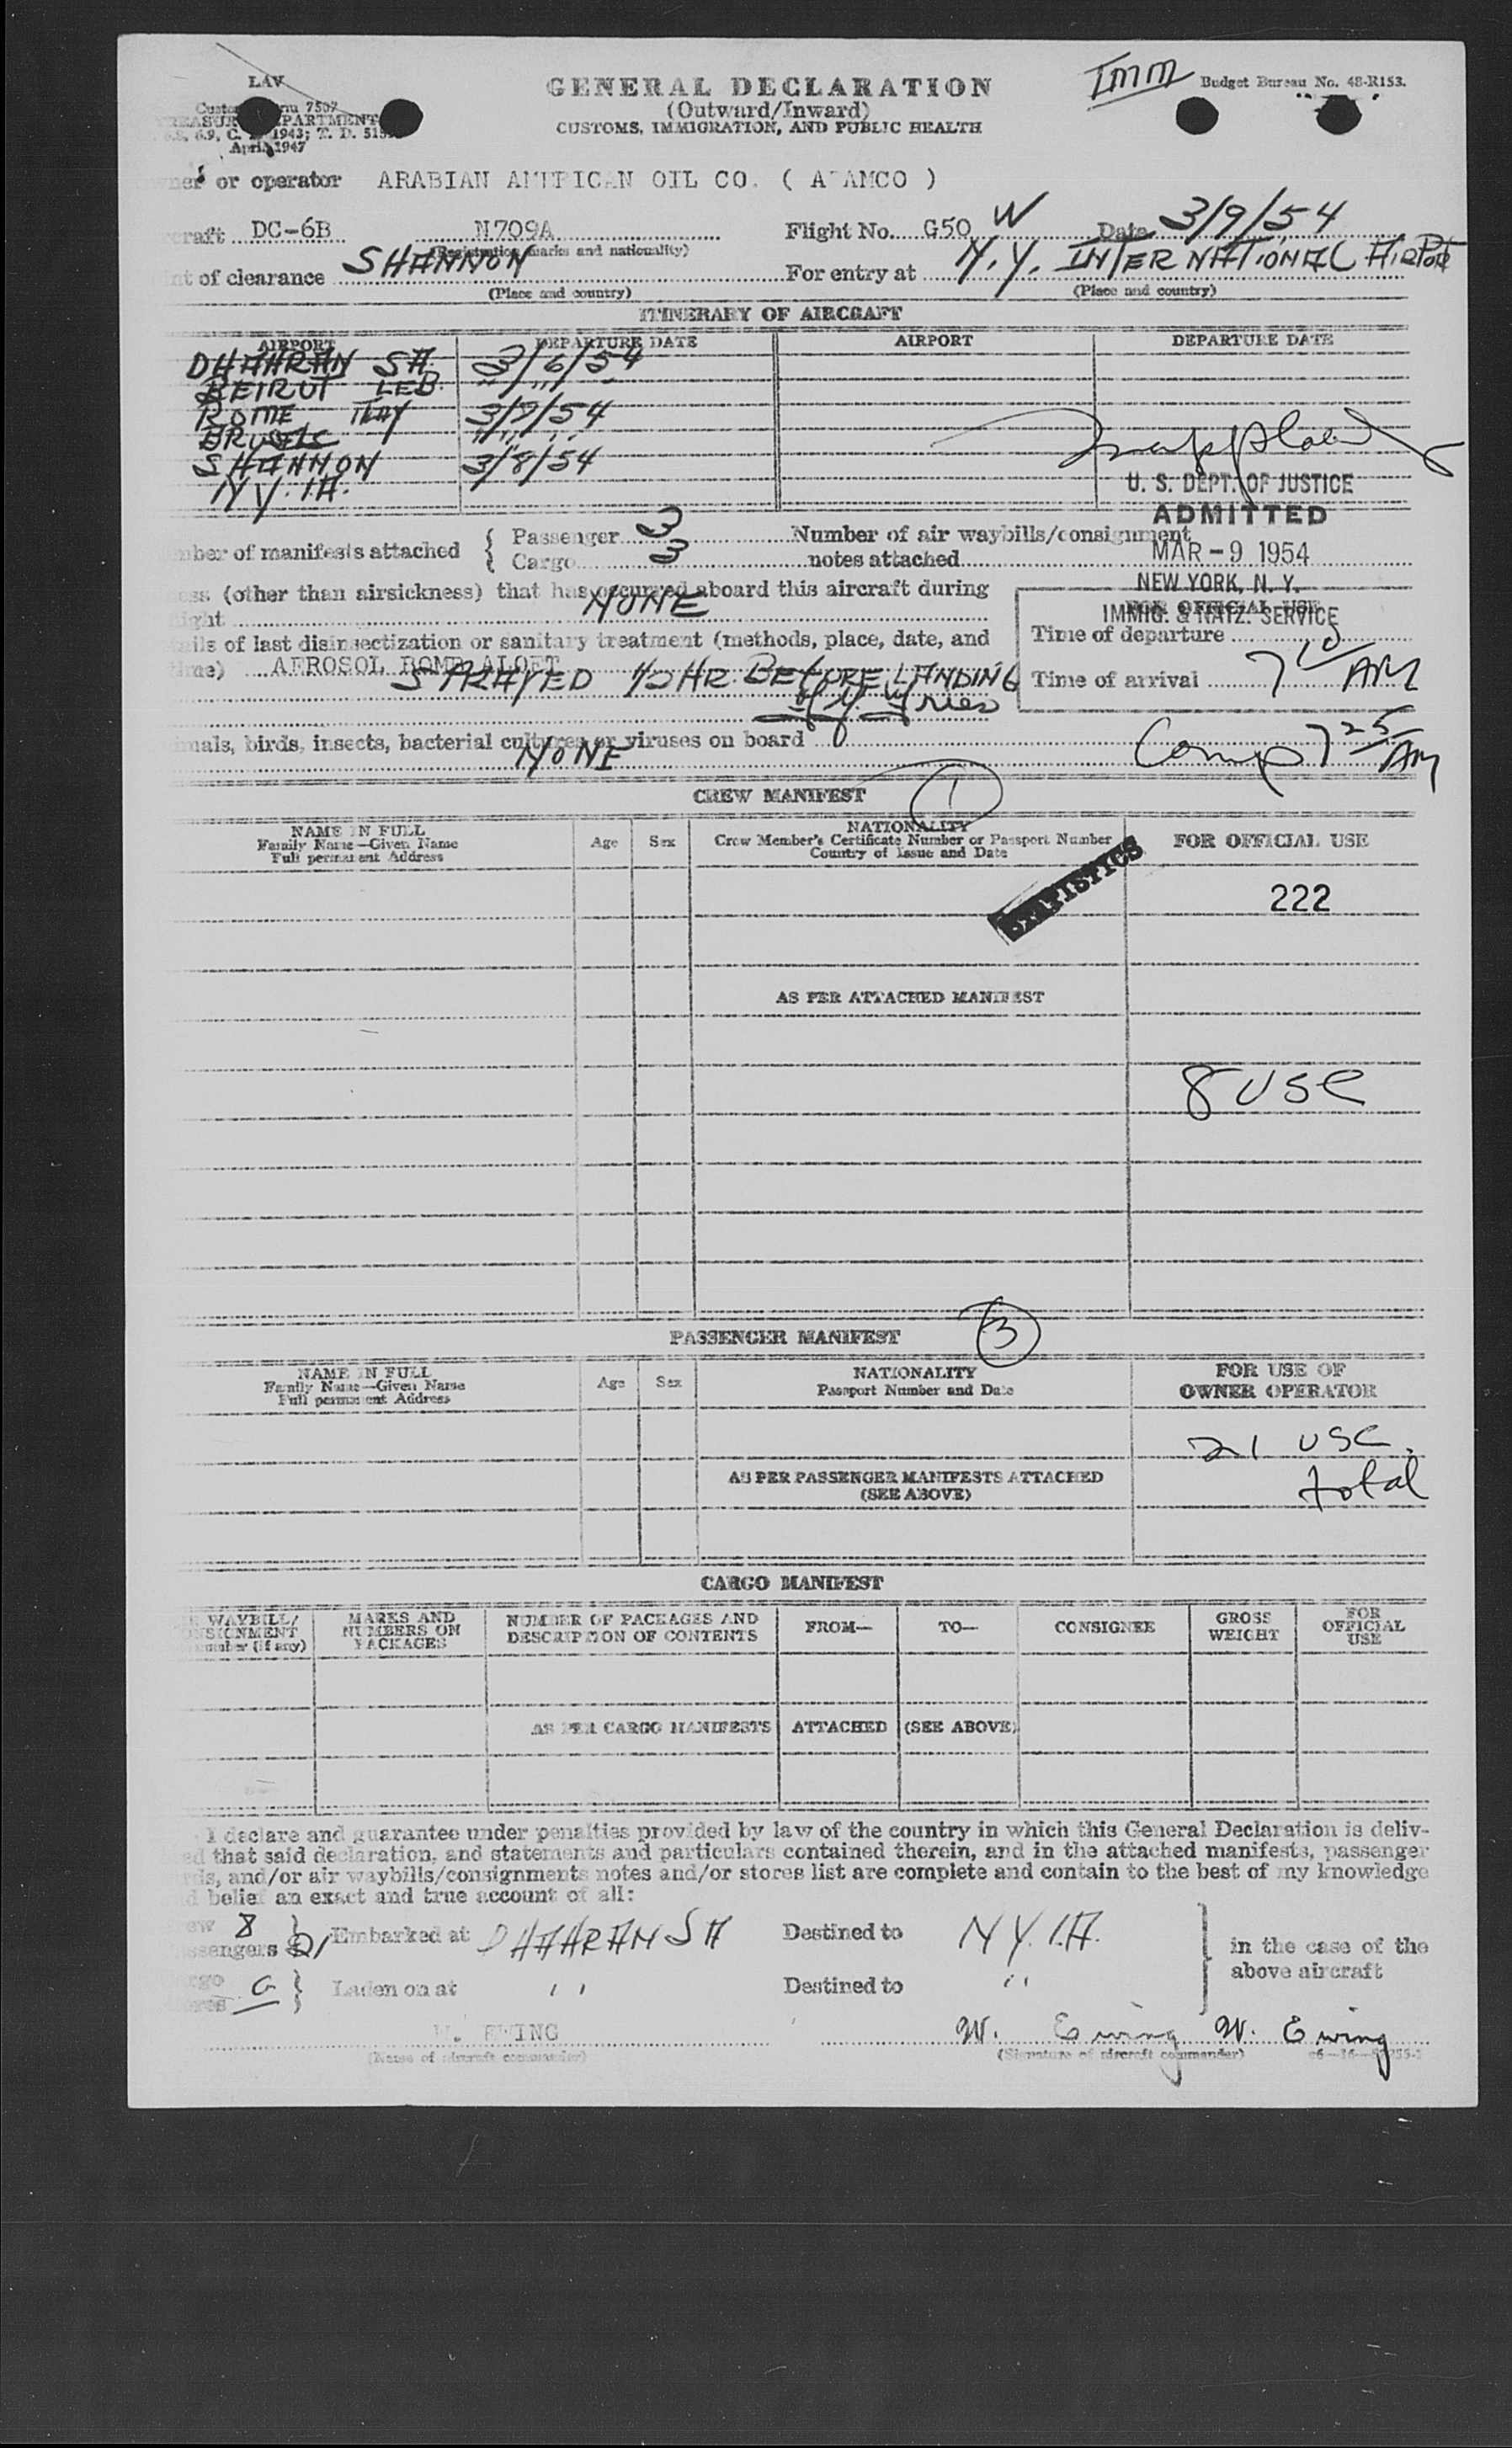 LAV
GENERAL DECLARATION
(Outward/Inward)
CUSTOMS, IMMIGRATION, AND PUBLIC HEALTH
Imm
Budget Bureau No. 48-R153.
7507
April 1947
or operator ARABIAN AMERICAN OIL CO. ( ARAMCO )
DC-6B N709A Flight No. G50 W Date 3/9/54
(Registration marks and nationality)
of clearance SHANNON For entry at N.Y. INTERNATIONAL AIRPORT
(Place and country) (Place and country)
ITINERARY OF AIRCRAFT
AIRPORT DEPARTURE DATE AIRPORT DEPARTURE DATE
DHAHRAN SA. 3/6/54
BEIRUT LEB. " / " / "
ROME ITALY
SHANNON 3/8/54
N.Y. I.A.
U. S. DEPT. OF JUSTICE
ADMITTED
MAR - 9 1954
NEW YORK, N. Y.
IMMIG. & NATZ. SERVICE
of manifests attached { Passenger 3 Number of air waybills/consignment
Cargo 3 notes attached
(other than airsickness) that has occurred aboard this aircraft during
NONE
of last disinsectization or sanitary treatment (methods, place, date, and
AEROSOL BOMB ALOFT
SPRAYED 1/2 HR. BEFORE LANDING
FOR OFFICIAL USE
Time of departure
Time of arrival 7 10 AM
birds, insects, bacterial cultures or viruses on board
NONE
Comp 7 25 AM
CREW MANIFEST 1
NAME IN FULL
Family Name—Given Name
Full permanent Address
Age Sex
NATIONALITY
Crew Member's Certificate Number or Passport Number
Country of Issue and Date
FOR OFFICIAL USE
STATISTICS
222
AS PER ATTACHED MANIFEST
8 USC
PASSENGER MANIFEST 3
NAME IN FULL
Family Name—Given Name
Full permanent Address
Age Sex
NATIONALITY
Passport Number and Date
FOR USE OF
OWNER OPERATOR
21 USC.
total
AS PER PASSENGER MANIFESTS ATTACHED
(SEE ABOVE)
CARGO MANIFEST
WAYBILL/
MARKS AND
NUMBERS ON
PACKAGES
NUMBER OF PACKAGES AND
DESCRIPTION OF CONTENTS
FROM— TO— CONSIGNEE
GROSS
WEIGHT
FOR
OFFICIAL
USE
AS PER CARGO MANIFESTS ATTACHED (SEE ABOVE)
I declare and guarantee under penalties provided by law of the country in which this General Declaration is deliv-
that said declaration, and statements and particulars contained therein, and in the attached manifests, passenger
and/or air waybills/consignments notes and/or stores list are complete and contain to the best of my knowledge
belief an exact and true account of all:
8 } Embarked at DHAHRAN SA Destined to N.Y. I.A. } in the case of the
21 above aircraft
} Laden on at " Destined to "
W. EWING W. Ewing W. Ewing
(Name of aircraft commander) (Signature of aircraft commander)